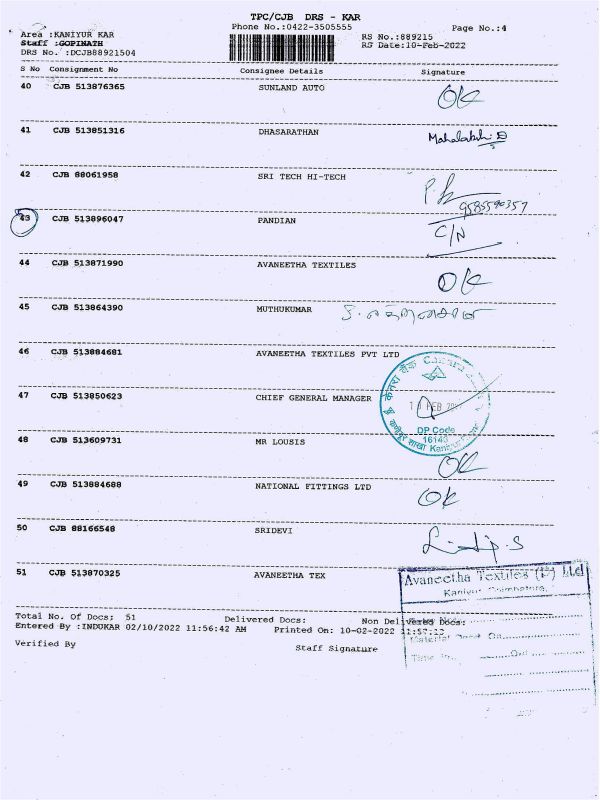 TPC/CJB DRS - KAR
Area :KANIYUR KAR Phone No.:0422-3505555 Page No.:4
Staff :GOPINATH RS No.:889215
DRS No. :DCJB88921504 RS Date:10-Feb-2022
S No Consignment No Consignee Details Signature
40 CJB 513876365 SUNLAND AUTO OK
41 CJB 513851316 DHASARATHAN Mahalakshi D
42 CJB 88061958 SRI TECH HI-TECH
9585590357
43 CJB 513896047 PANDIAN C/N
44 CJB 513871990 AVANEETHA TEXTILES OK
45 CJB 513864390 MUTHUKUMAR
46 CJB 513884681 AVANEETHA TEXTILES PVT LTD
47 CJB 513850623 CHIEF GENERAL MANAGER
FEB
DP Code
16143
48 CJB 513609731 MR LOUSIS OK
49 CJB 513884688 NATIONAL FITTINGS LTD OK
50 CJB 88166548 SRIDEVI
51 CJB 513870325 AVANEETHA TEX
Avaneetha Textiles (P) Ltd
Kaniyur Coimbatore
Total No. Of Docs: 51 Delivered Docs: Non Delivered Docs:
Entered By :INDUKAR 02/10/2022 11:56:42 AM Printed On: 10-02-2022 11:57:13
Verified By Staff Signature